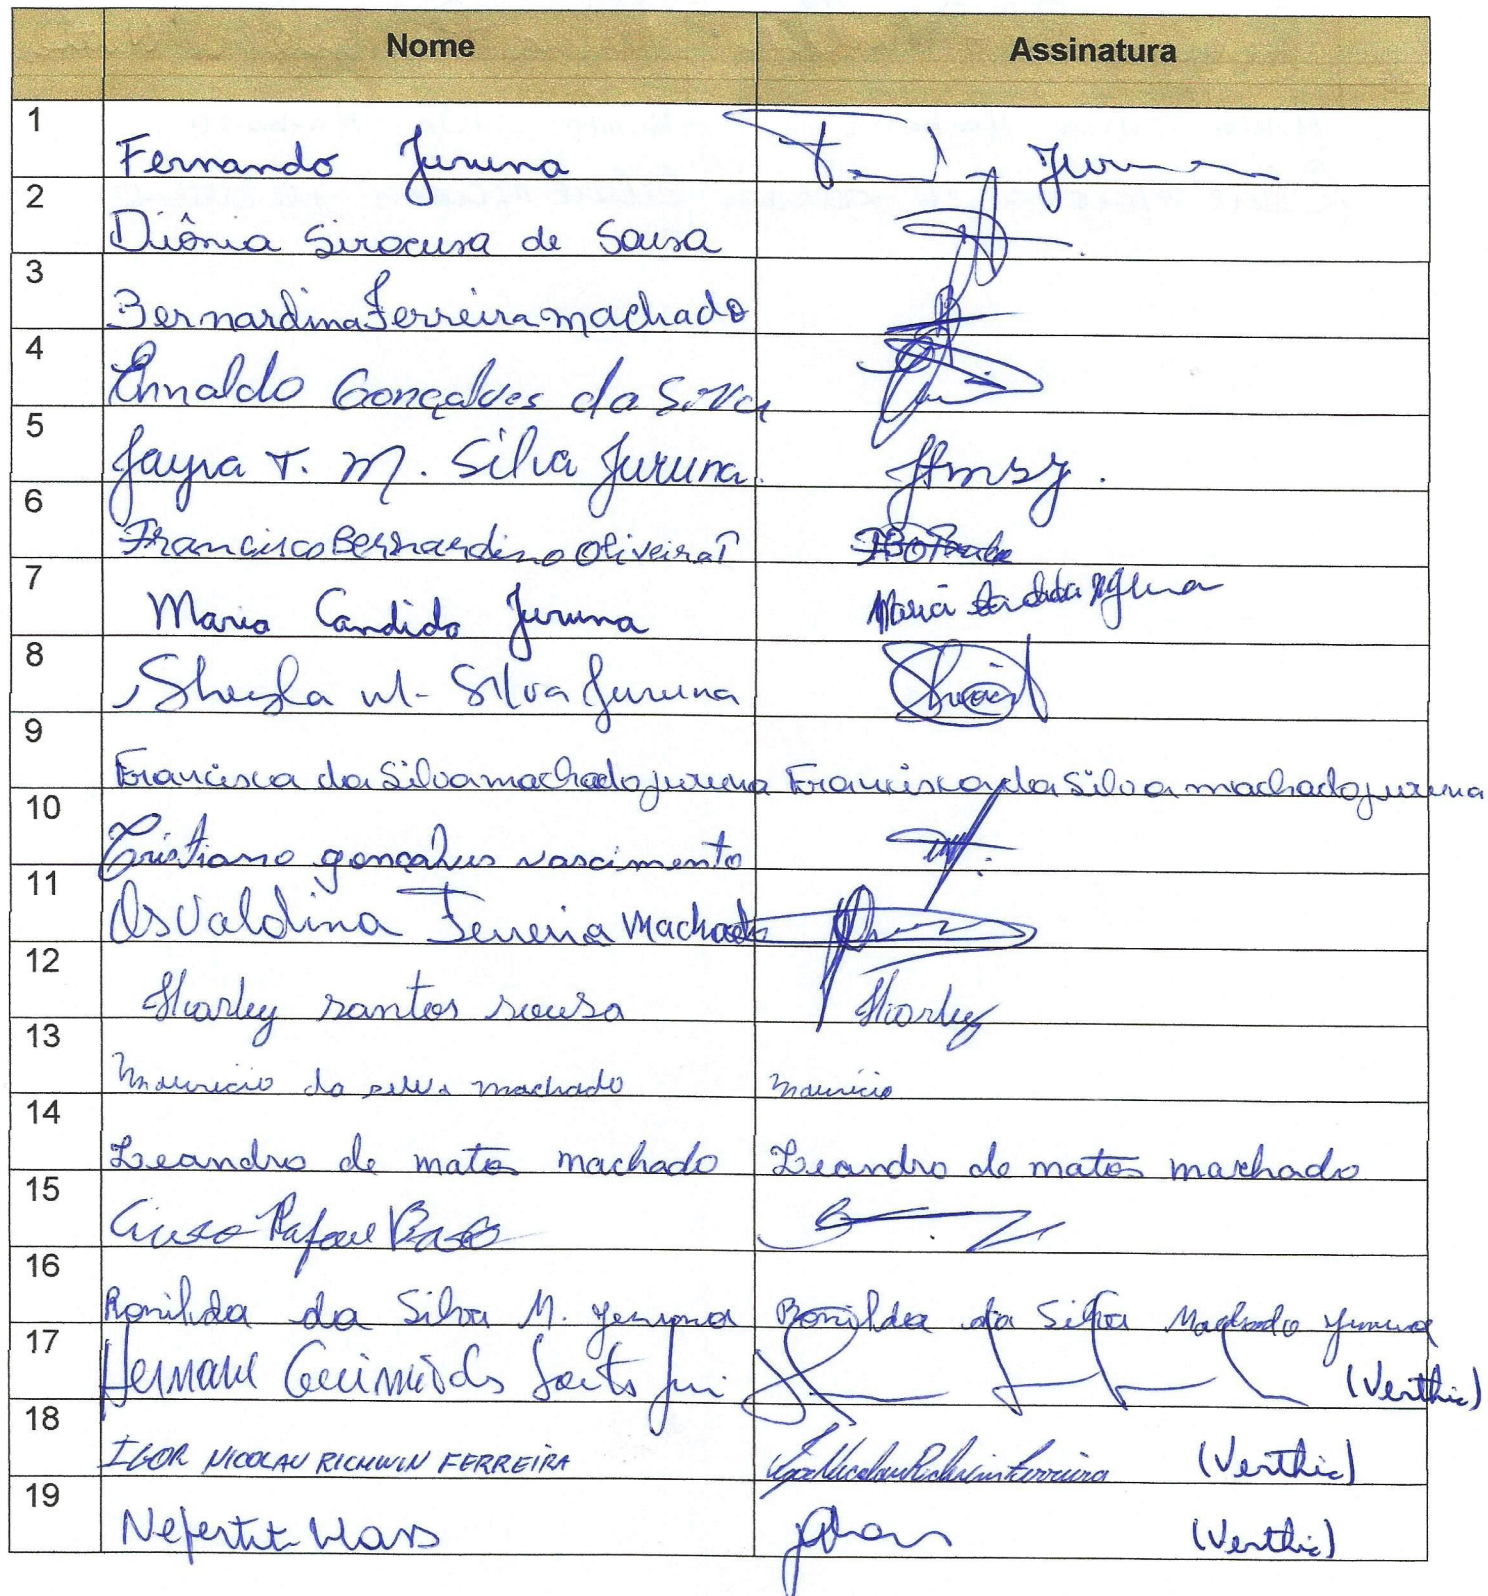 Nome Assinatura
1 Fernando Juruna Juruna
2 Diônia Siracusa de Sousa
3 Bernardina Ferreira machado
4 Gonçalves da Silva
5 Jayra T. M. Silva Juruna. JTmsJ.
6 Francisco Bernardino Oliveira
7 Maria Candida Juruna Maria
8 Sheyla M. Silva Juruna
9 Francisca da Silva machado juruna Francisca da Silva machado juruna
10 Cristiano gonçalves nascimento
11 Osvaldina Ferreira Machado
12 Sharley santos sousa Sharley
13 mauricio da silva machado mauricio
14 Leandro de matos machado Leandro de matos machado
15 Rafael
16 Ronilda da Silva M. Juruna Ronilda da Silva Machado Juruna
17 (Verthic)
18 IGOR NICOLAU RICHWIN FERREIRA Igor Nicolau Richwin Ferreira (Verthic)
19 (Verthic)